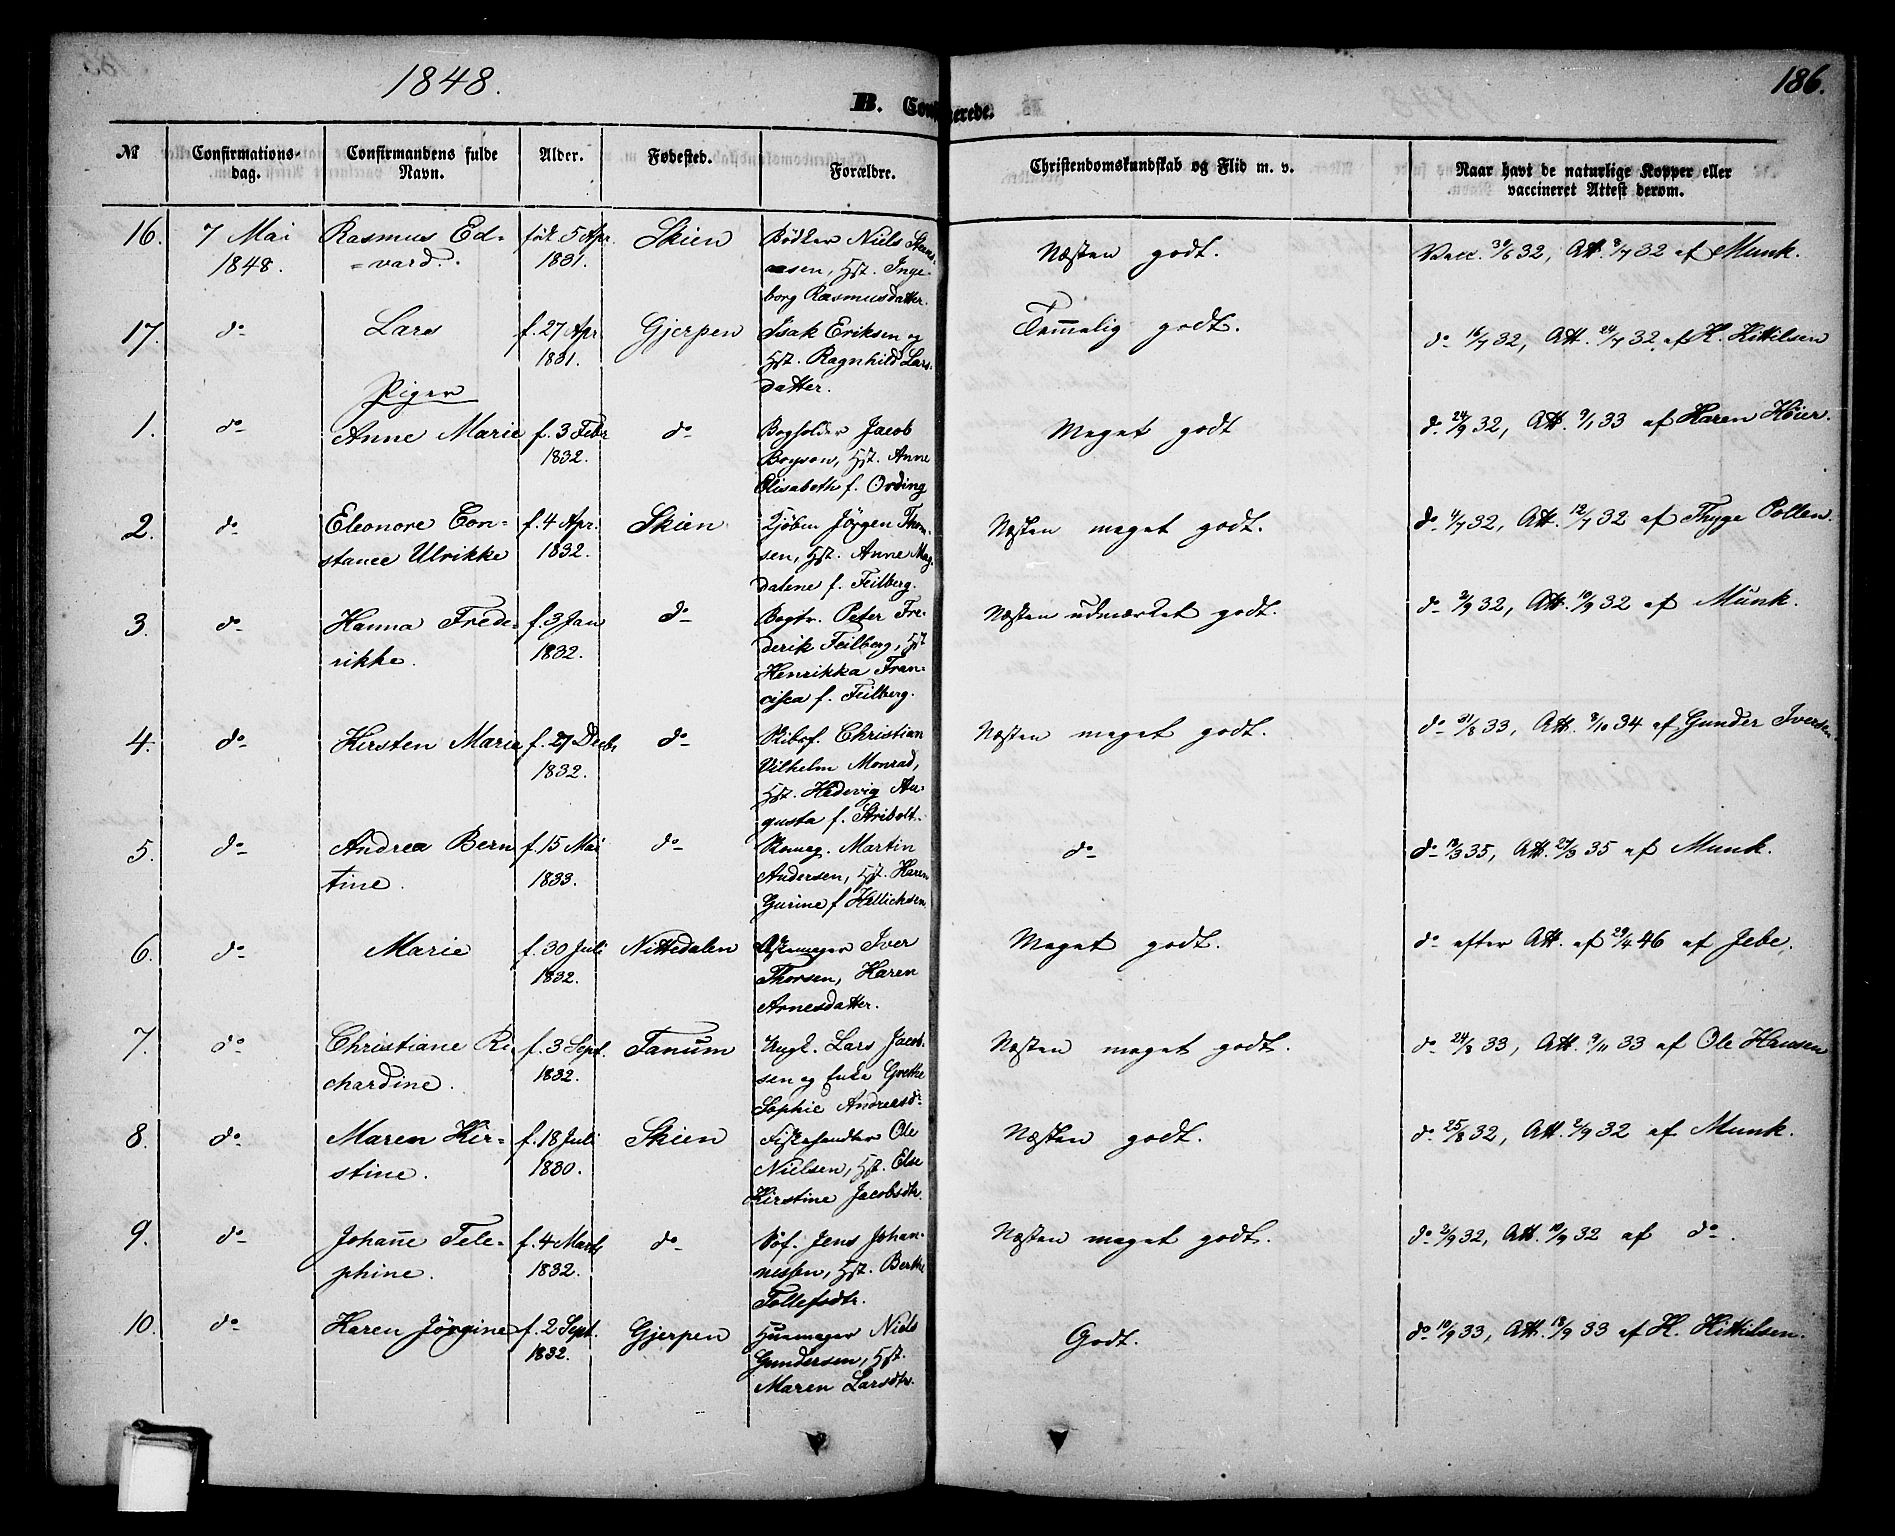 1848.
186.
B. Confirmerede.
№
Confirmations-
dag.
Confirmandens fulde
Navn.
Alder.
Fødested.
Forældre.
Christendomskundskab og Flid m. v.
Naar havt de naturlige Kopper eller
vaccineret Attest derom.
16.
7 Mai
1848.
Rasmus Ed-
vard.
föd 5 Apr.
1831.
Skien
Bödker Niels
Hst. Inge-
borg Rasmusdatter.
Næsten godt.
Vacc. 30/6 32, Att. 8/7 32 af Munk.
17.
do
Lars
f. 27 Apr.
1831.
Gjerpen
Isak Eriksen og
Hst. Ragnhild Lars-
datter.
Temmelig godt.
do 16/7 32, Att. 24/7 32 af H. Kittilsen
Piger
1.
do
Anne Marie
f. 3 Febr
1832.
do
Bogholder Jacob
Boyson, Hst. Anne
Elisabeth f. Ording
Meget godt
do 24/9 32, Att. 9/1 33 af Karen Höier.
2.
do
Eleonore Con-
stance Ulrikke
f. 4 Apr.
1832.
Skien
Kjöbm Jörgen Thom-
sen, Hst. Anne Mag-
dalene f. Feilberg.
Næsten meget godt.
do 4/7 32, Att. 12/7 32 af Thyge Pollen.
3.
do
Hanna Frede-
rikke.
f. 3 Jan
1832.
do
Bogtr. Peter Fre-
derik Feilberg, Hst
Henrikka Fran-
cisca f. Feilberg.
Næsten udmærket godt.
do 2/9 32, Att. 10/9 32 af Munk.
4.
do
Kirsten Marie
f. 27 Decb.
1832.
do
Skibsf. Christian
Vilhelm Monrad,
Hst. Hedevig Au-
gusta f. Stribolt.
Næsten meget godt.
do 31/8 33, Att. 8/10 34 af Gunder Iversen
5.
do
Andrea Bern
tine.
f. 15 Mai
1833.
do
Martin
Andersen, Hst. Karen
Gurine f
do
do 19/3 35, Att. 27/3 35 af Munk.
6.
do
Marie
f. 30 Juli
1832.
Nittedalen
Iver
Thorsen, Karen
Arnesdatter.
Meget godt.
do efter Att. af 29/4 46 af Jebe.
7.
do
Christiane Ri-
chardine.
f. 3 Sept.
1832.
Tanum
Ungk. Lars Jacob-
sen og Enke Grethe
Sophie Andreasdr
Næsten meget godt.
do 24/8 33, Att. 9/11 33 af Ole Hansen
8.
do
Maren Kir-
stine.
f. 18 Juli
1830.
Skien
Fiskehandler Ole
Nielsen, Hst. Else
Kirstine Jacobsdtr.
Næsten godt.
do 25/8 32, Att. 2/9 32 af Munk.
9.
do
Johanne Tele-
phine.
f. 4 Marts
1832.
do
Söf. Jens Johan-
nessen, Hst. Berthe
Tollefsdtr.
Næsten meget godt.
do 2/9 32, Att. 10/9 32 af do.
10.
do
Karen Jörgine
f. 2 Sept.
1832.
Gjerpen
Huusmager Niels
Gundersen, Hst.
Maren Larsdtr.
Godt.
do 10/9 33, Att. 18/9 33 af H. Kittilsen.